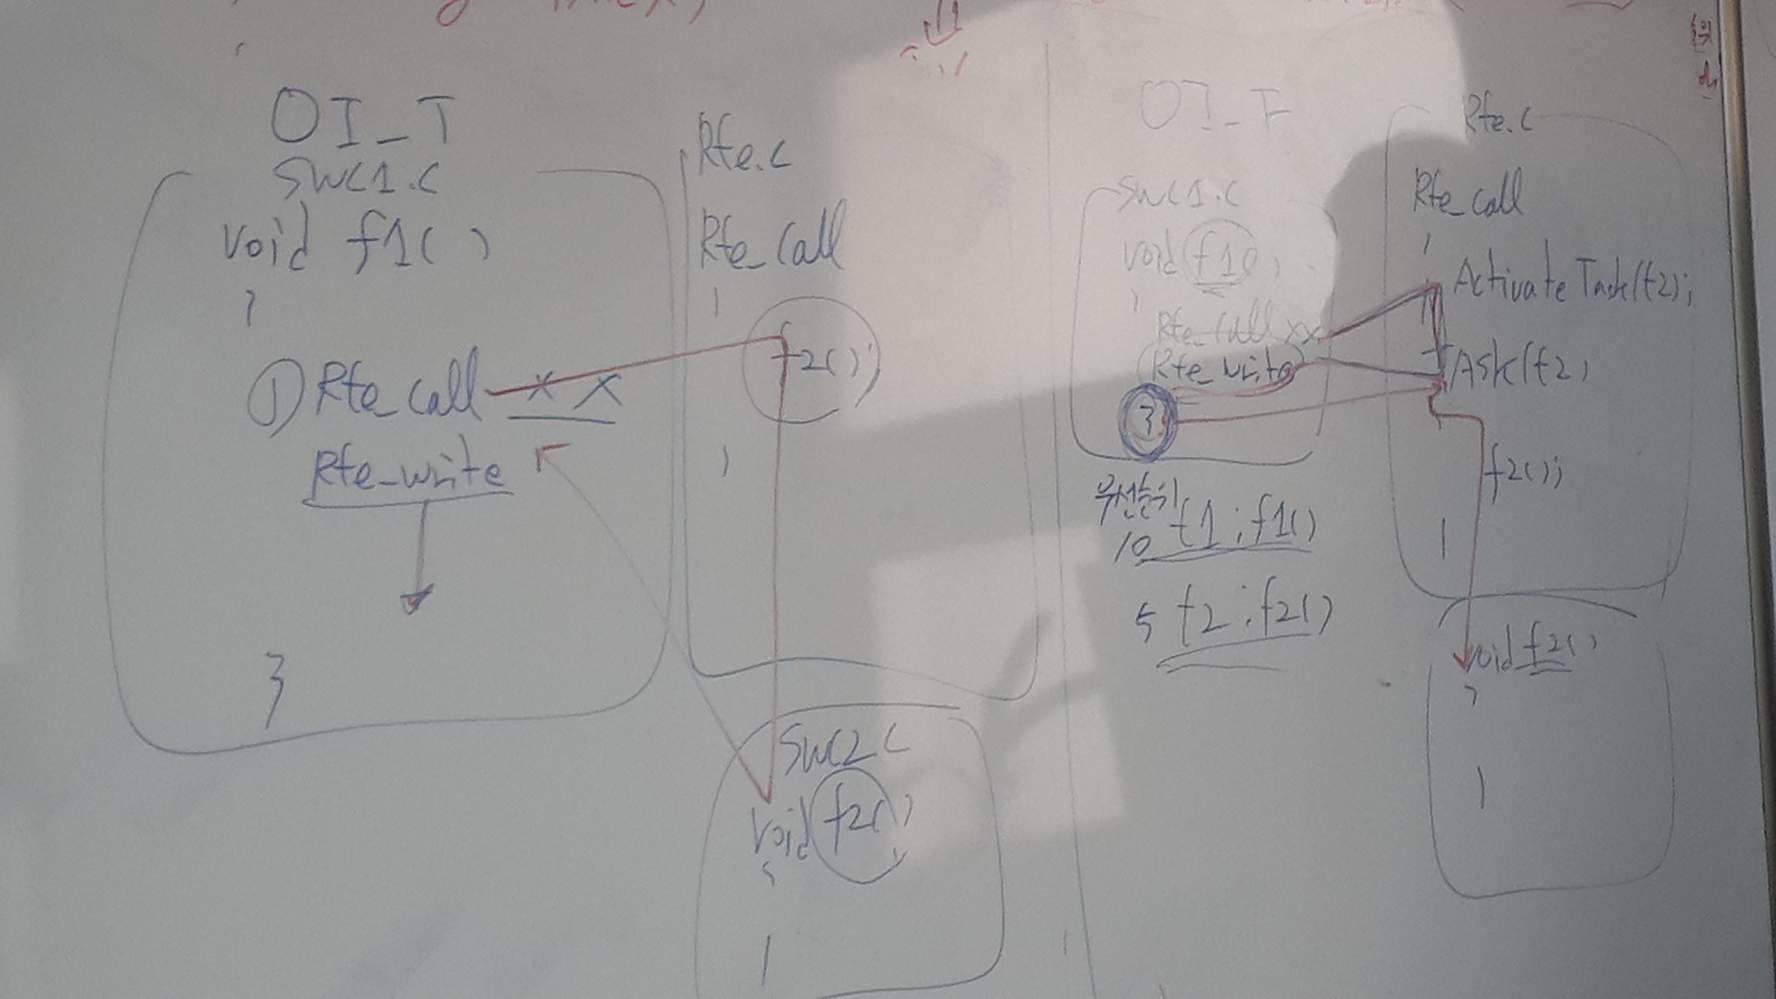 OI_T
SWC1.C
void f1( )
{
① Rte_call x x
Rte_write
}
Rte.c
Rte_call
{
f2( );
}
SWC2.C
void f2( )
{
}
OI_F
SWC1.C
void f1()
{
Rte_call xx
Rte_write
}
우선순위
10 t1 : f1()
5 t2 : f2()
Rte.c
Rte_call
{
Activate Task(t2);
Task(t2)
f2( );
}
void f2( )
{
}